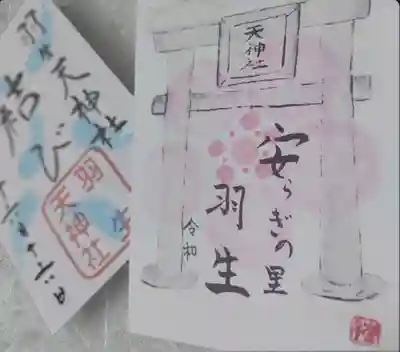 天神社
安らぎの里
羽生
令和
天神社
結び
羽生
天神社